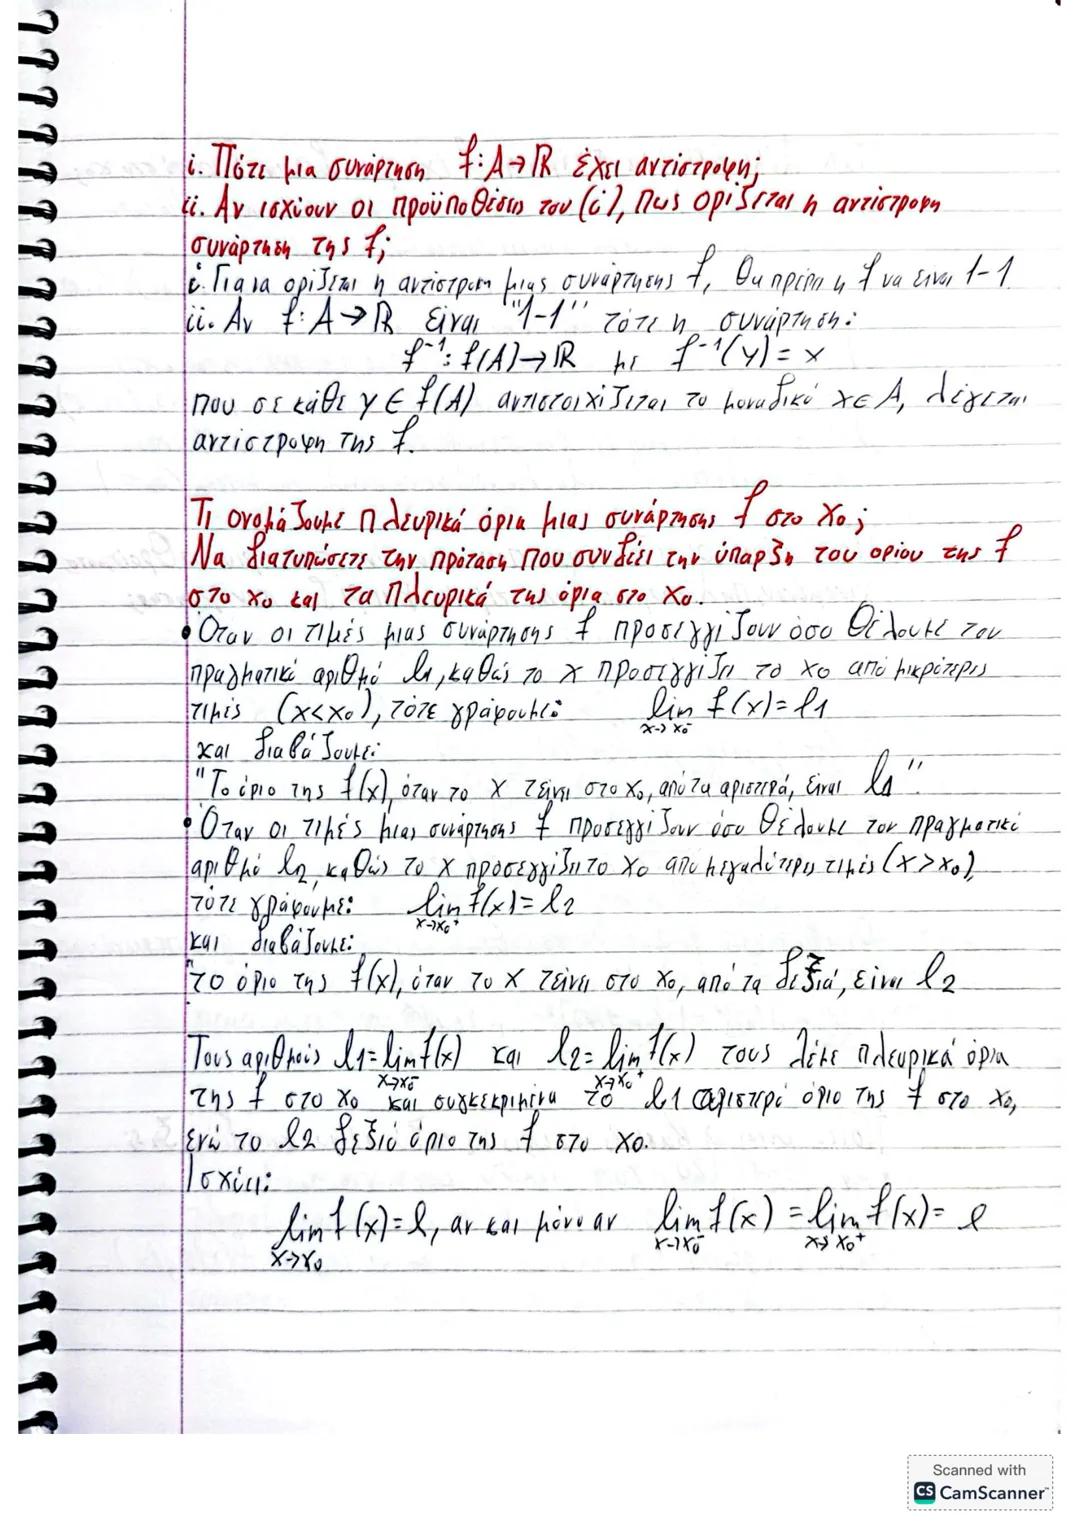 i. Πότε μια συνάρτηση f: A→ℝ έχει αντίστροφη;
ii. Αν ισχύουν οι προϋποθέσεις του (i), πως ορίζεται η αντίστροφη
συνάρτηση της f;
i. Για να ορίζεται η αντίστροφη μιας συνάρτησης f, θα πρέπει η f να είναι 1-1
ii. Αν f: A→ℝ είναι "1-1" τότε η συνάρτηση:
f⁻¹: f(A)→ℝ με f⁻¹(y) = x
που σε κάθε y ∈ f(A) αντιστοιχίζεται το μοναδικό x ∈ A, λέγεται
αντίστροφη της f.
Τι ονομάζουμε πλευρικά όρια μιας συνάρτησης f στο x₀;
Να διατυπώσετε την πρόταση που συνδέει την ύπαρξη του ορίου της f
στο x₀ και τα πλευρικά της όρια στο x₀.
• Όταν οι τιμές μιας συνάρτησης f προσεγγίζουν όσο θέλουμε τον
πραγματικό αριθμό l1, καθώς το x προσεγγίζει το x₀ από μικρότερες
τιμές (x<x₀), τότε γράφουμε: lim f(x) = l1
x→x₀⁻
και διαβάζουμε:
"Το όριο της f(x), όταν το x τείνει στο x₀, από τα αριστερά, είναι l1".
• Όταν οι τιμές μιας συνάρτησης f προσεγγίζουν όσο θέλουμε τον πραγματικό
αριθμό l2, καθώς το x προσεγγίζει το x₀ από μεγαλύτερες τιμές (x>x₀),
τότε γράφουμε: lim f(x) = l2
x→x₀⁺
και διαβάζουμε:
"το όριο της f(x), όταν το x τείνει στο x₀, από τα δεξιά, είναι l2
Τους αριθμούς l1 = lim f(x) και l2 = lim f(x) τους λέμε πλευρικά όρια
x→x₀⁻ x→x₀⁺
της f στο x₀ και συγκεκριμένα το l1 αριστερό όριο της f στο x₀,
ενώ το l2 δεξιό όριο της f στο x₀.
Ισχύει:
lim f(x) = l, αν και μόνο αν lim f(x) = lim f(x) = l
x→x₀ x→x₀⁻ x→x₀⁺
Scanned with
CS CamScanner